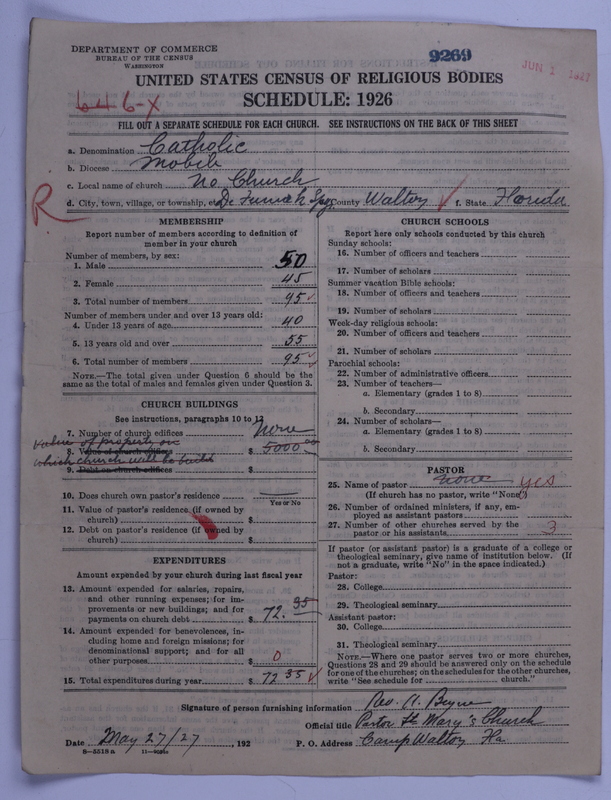 DEPARTMENT OF COMMERCE
BUREAU OF THE CENSUS
WASHINGTON
9269
JUN 1 1927
UNITED STATES CENSUS OF RELIGIOUS BODIES
646-X
SCHEDULE: 1926
FILL OUT A SEPARATE SCHEDULE FOR EACH CHURCH. SEE INSTRUCTIONS ON THE BACK OF THIS SHEET
a. Denomination Catholic
b. Diocese Mobile
c. Local name of church No Church
R
d. City, town, village, or township, e. De Funiak Spgs County Walton f. State Florida
MEMBERSHIP
Report number of members according to definition of
member in your church
Number of members, by sex:
1. Male 50
2. Female 45
3. Total number of members 95
Number of members under and over 13 years old:
4. Under 13 years of age 40
5. 13 years old and over 55
6. Total number of members 95
NOTE.—The total given under Question 6 should be the
same as the total of males and females given under Question 3.
CHURCH BUILDINGS
See instructions, paragraphs 10 to 12
7. Number of church edifices None
Value of property on
8. Value of church edifices $ 5000.00
which church will be build
9. Debt on church edifices $
10. Does church own pastor's residence
Yes or No
11. Value of pastor's residence (if owned by
church) $
12. Debt on pastor's residence (if owned by
church) $
EXPENDITURES
Amount expended by your church during last fiscal year
13. Amount expended for salaries, repairs,
and other running expenses; for im-
provements or new buildings; and for
payments on church debt $ 72.35
14. Amount expended for benevolences, in-
cluding home and foreign missions; for
denominational support; and for all
other purposes $ 0
15. Total expenditures during year $ 72 35
CHURCH SCHOOLS
Report here only schools conducted by this church
Sunday schools:
16. Number of officers and teachers
17. Number of scholars
Summer vacation Bible schools:
18. Number of officers and teachers
19. Number of scholars
Week-day religious schools:
20. Number of officers and teachers
21. Number of scholars
Parochial schools:
22. Number of administrative officers
23. Number of teachers—
a. Elementary (grades 1 to 8)
b. Secondary
24. Number of scholars—
a. Elementary (grades 1 to 8)
b. Secondary
PASTOR
25. Name of pastor none yes
(If church has no pastor, write "None")
26. Number of ordained ministers, if any, em-
ployed as assistant pastors
27. Number of other churches served by the
pastor or his assistants 3
If pastor (or assistant pastor) is a graduate of a college or
theological seminary, give name of institution below. (If
not a graduate, write "No" in the space indicated.)
Pastor:
28. College
29. Theological seminary
Assistant pastor:
30. College
31. Theological seminary
NOTE.—Where one pastor serves two or more churches,
Questions 28 and 29 should be answered only on the schedule
for one of the churches; on the schedules for the other churches,
write "See schedule for church."
Signature of person furnishing information Rev. A.
Official title Pastor St Mary's Church
Date May 27/27, 192 P. O. Address Camp Walton Fla
8—5518 a